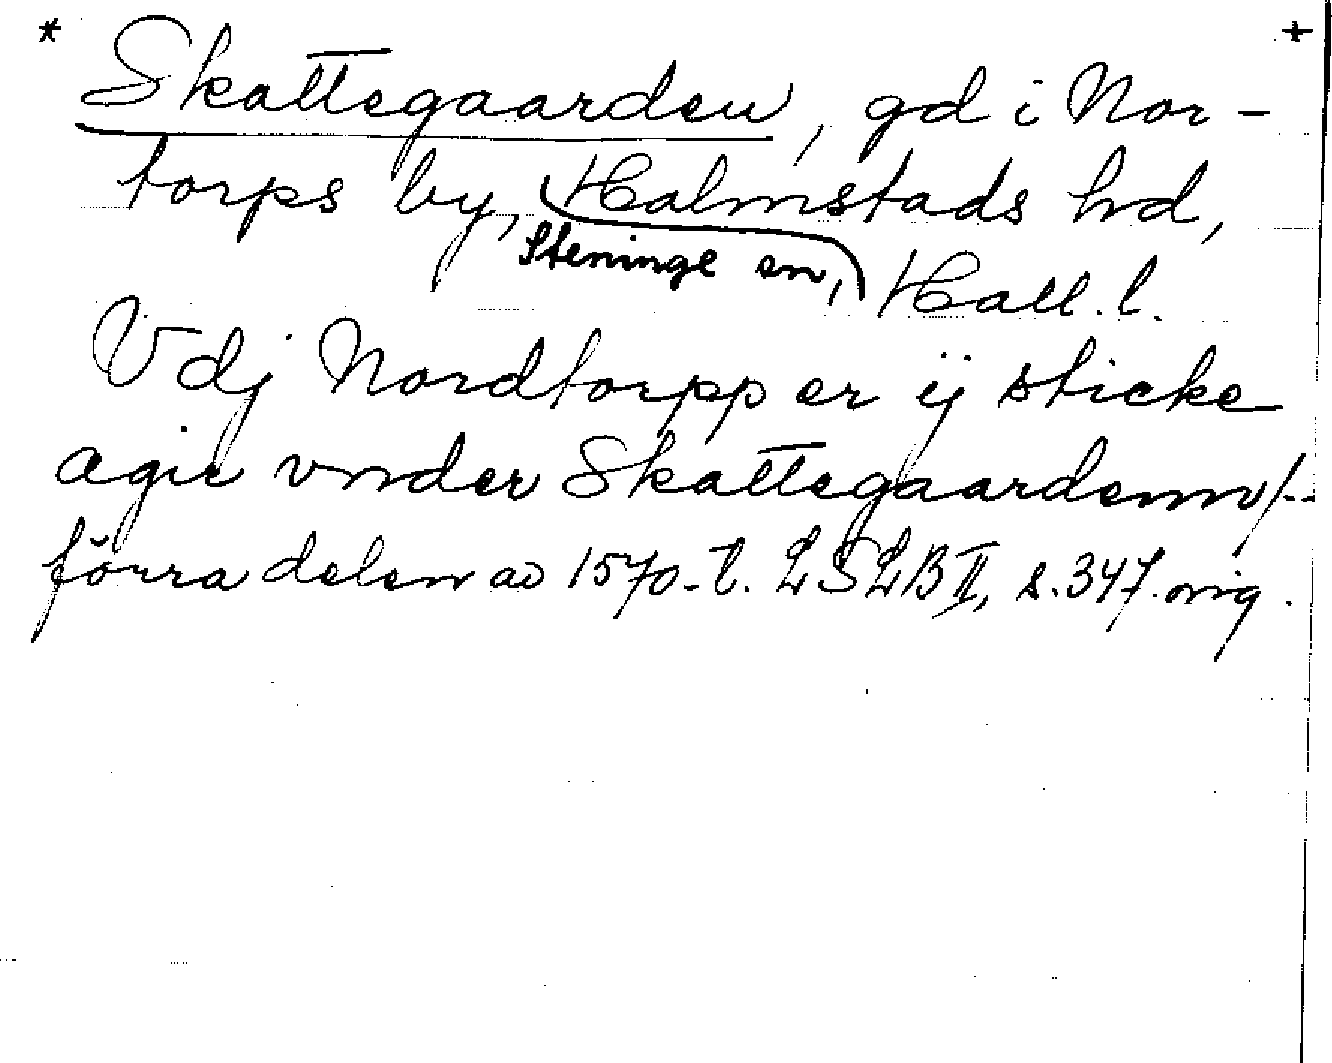 * Skattegaarden, gd i Nor- +
torps by, Halmstads hd,
Steninge sn, Hall. l.
Vdj Nordtorpp er ij sticke
agre vnder Skattegaardenn/--
förra delen av 1570-t. LSLB II, s. 347. orig.